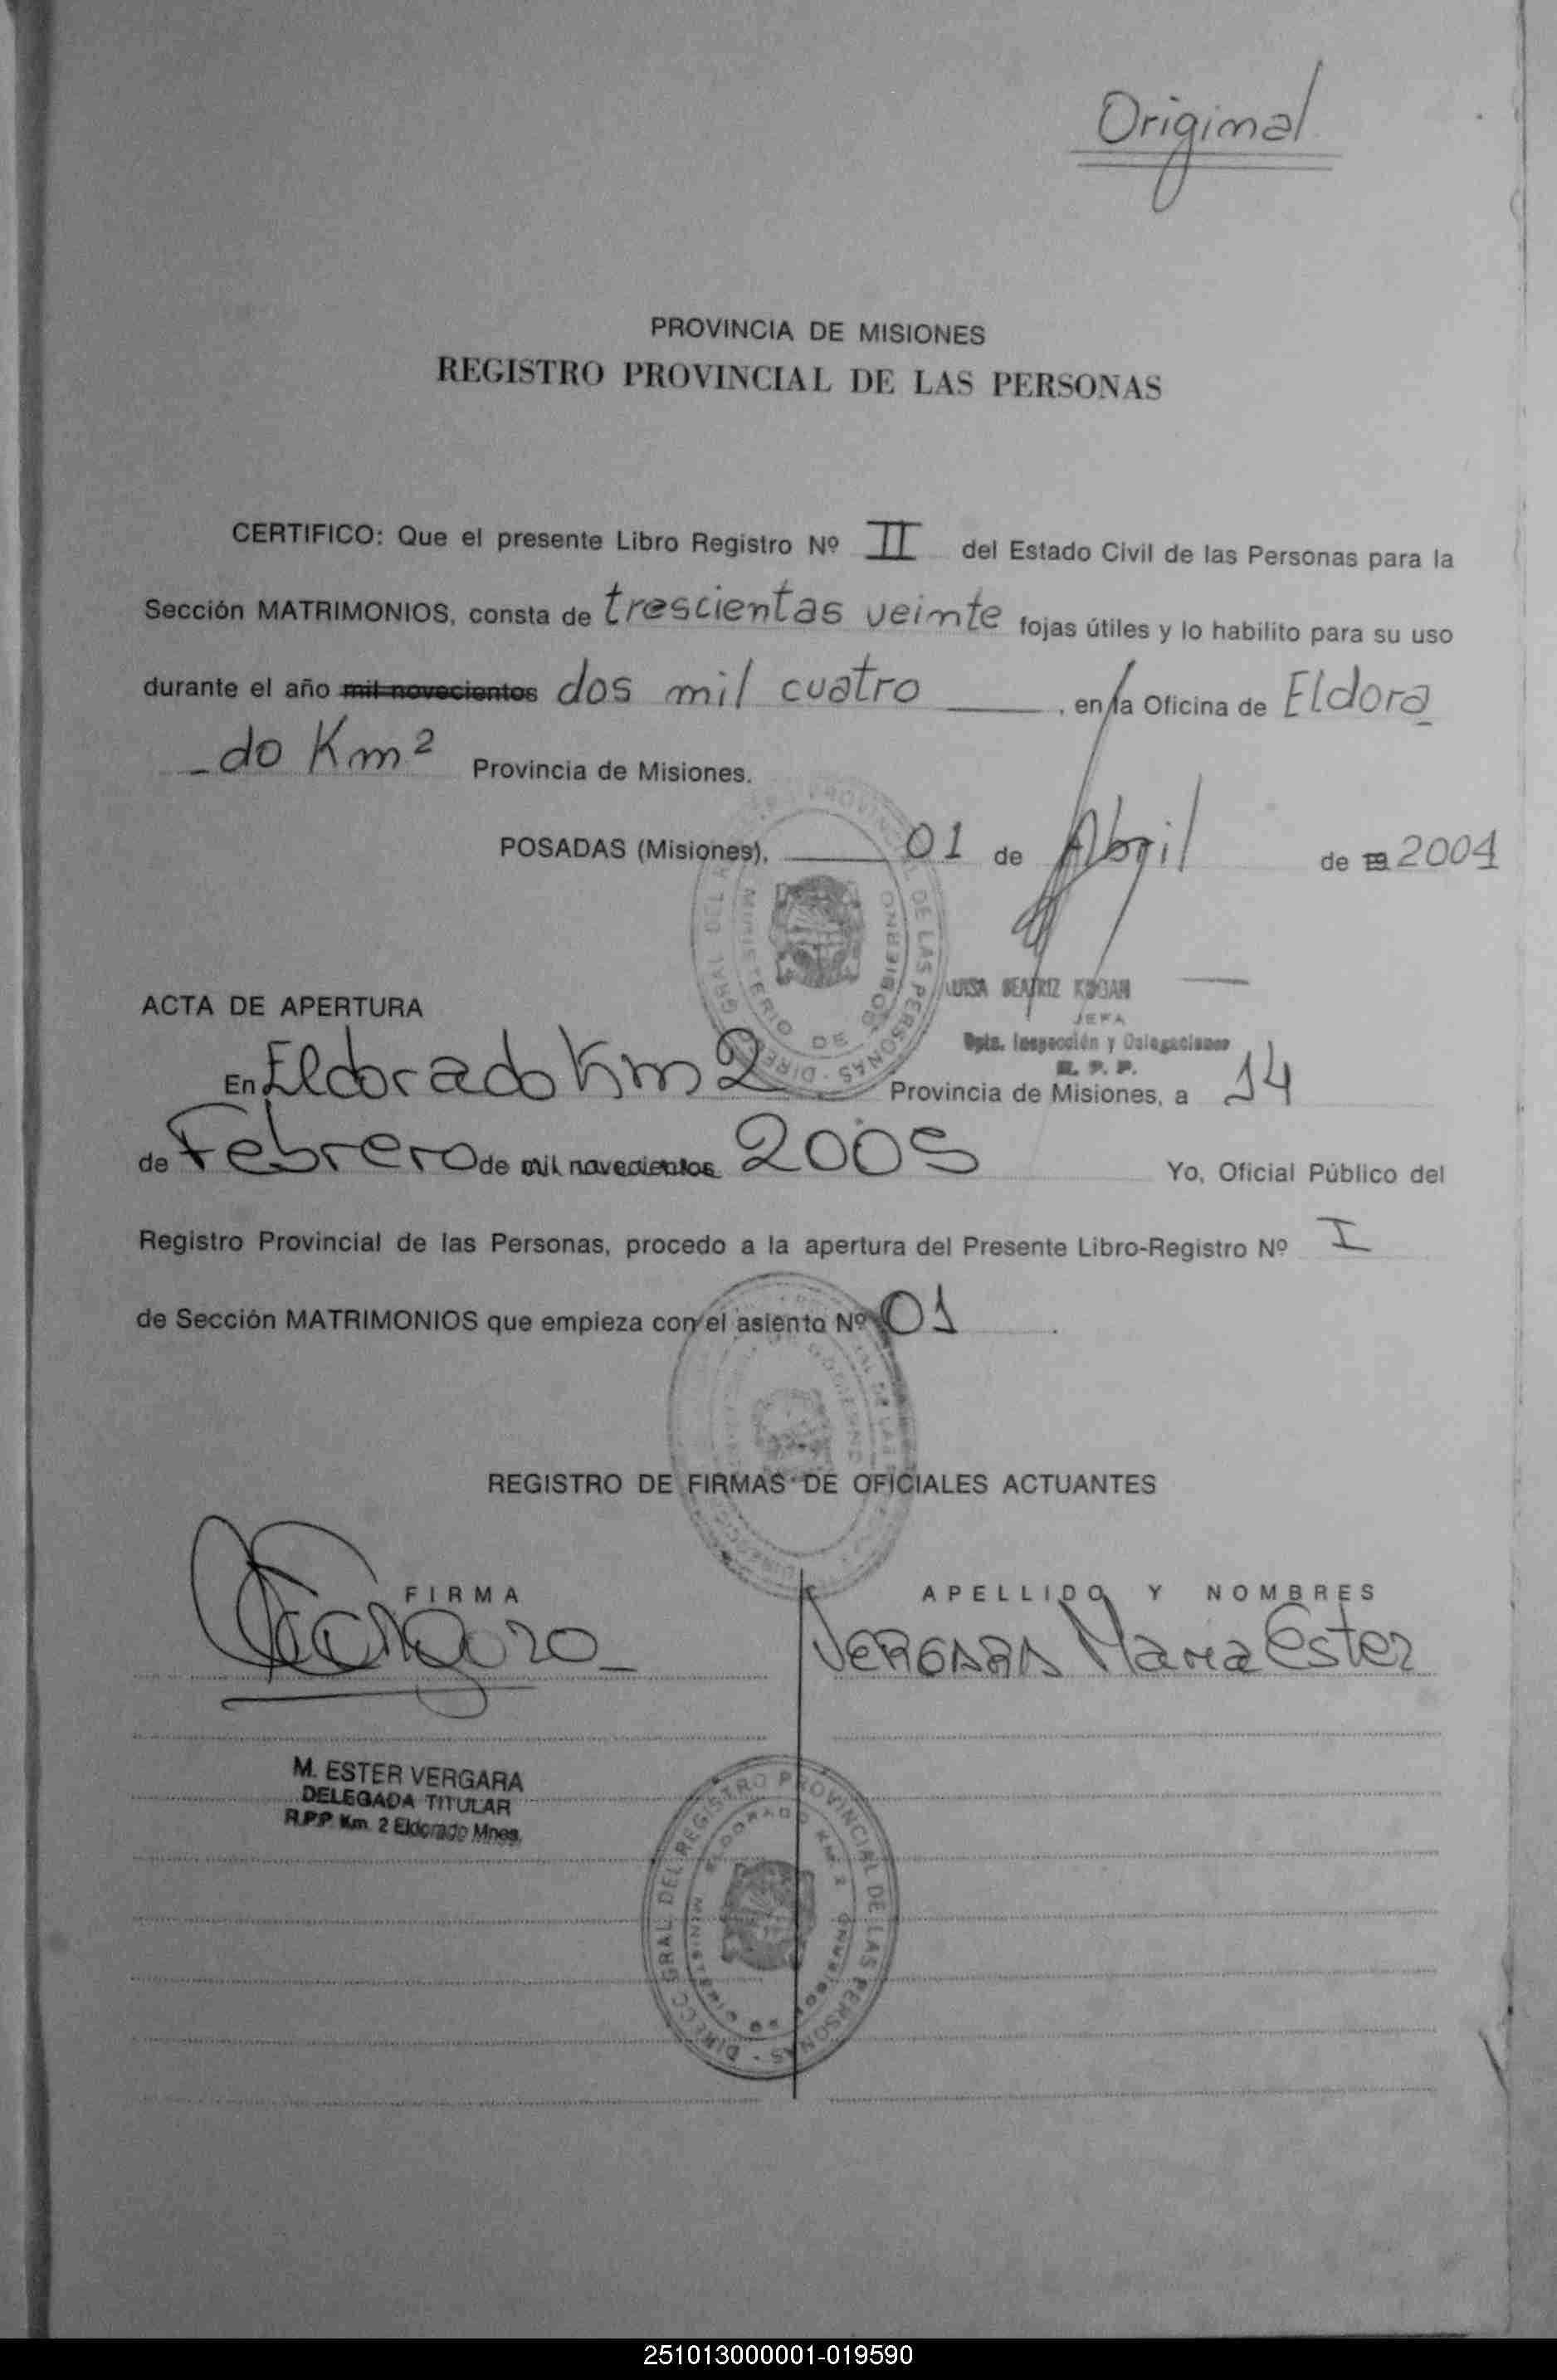 Original
PROVINCIA DE MISIONES
REGISTRO PROVINCIAL DE LAS PERSONAS
CERTIFICO: Que el presente Libro Registro Nº II del Estado Civil de las Personas para la
Sección MATRIMONIOS, consta de trescientas veinte fojas útiles y lo habilito para su uso
durante el año mil novecientos dos mil cuatro , en la Oficina de Eldora
-do Km 2 Provincia de Misiones.
POSADAS (Misiones), 01 de Abril de 19 2004
LUISA BEATRIZ KOGAN
JEFA
Dpto. Inspección y Delegaciones
R. P. P.
ACTA DE APERTURA
En Eldorado Km 2 Provincia de Misiones, a 14
de Febrero de mil novecientos 2005 Yo, Oficial Público del
Registro Provincial de las Personas, procedo a la apertura del Presente Libro-Registro Nº I
de Sección MATRIMONIOS que empieza con el asiento Nº 01
REGISTRO DE FIRMAS DE OFICIALES ACTUANTES
FIRMA APELLIDO Y NOMBRES
VERGARA Maria Ester
M. ESTER VERGARA
DELEGADA TITULAR
R.P.P. Km. 2 Eldorado Mnes.
DIRECC. GRAL. DEL REGISTRO PROVINCIAL DE LAS PERSONAS
ELDORADO KM 2
MINISTERIO DE GOBIERNO
251013000001-019590